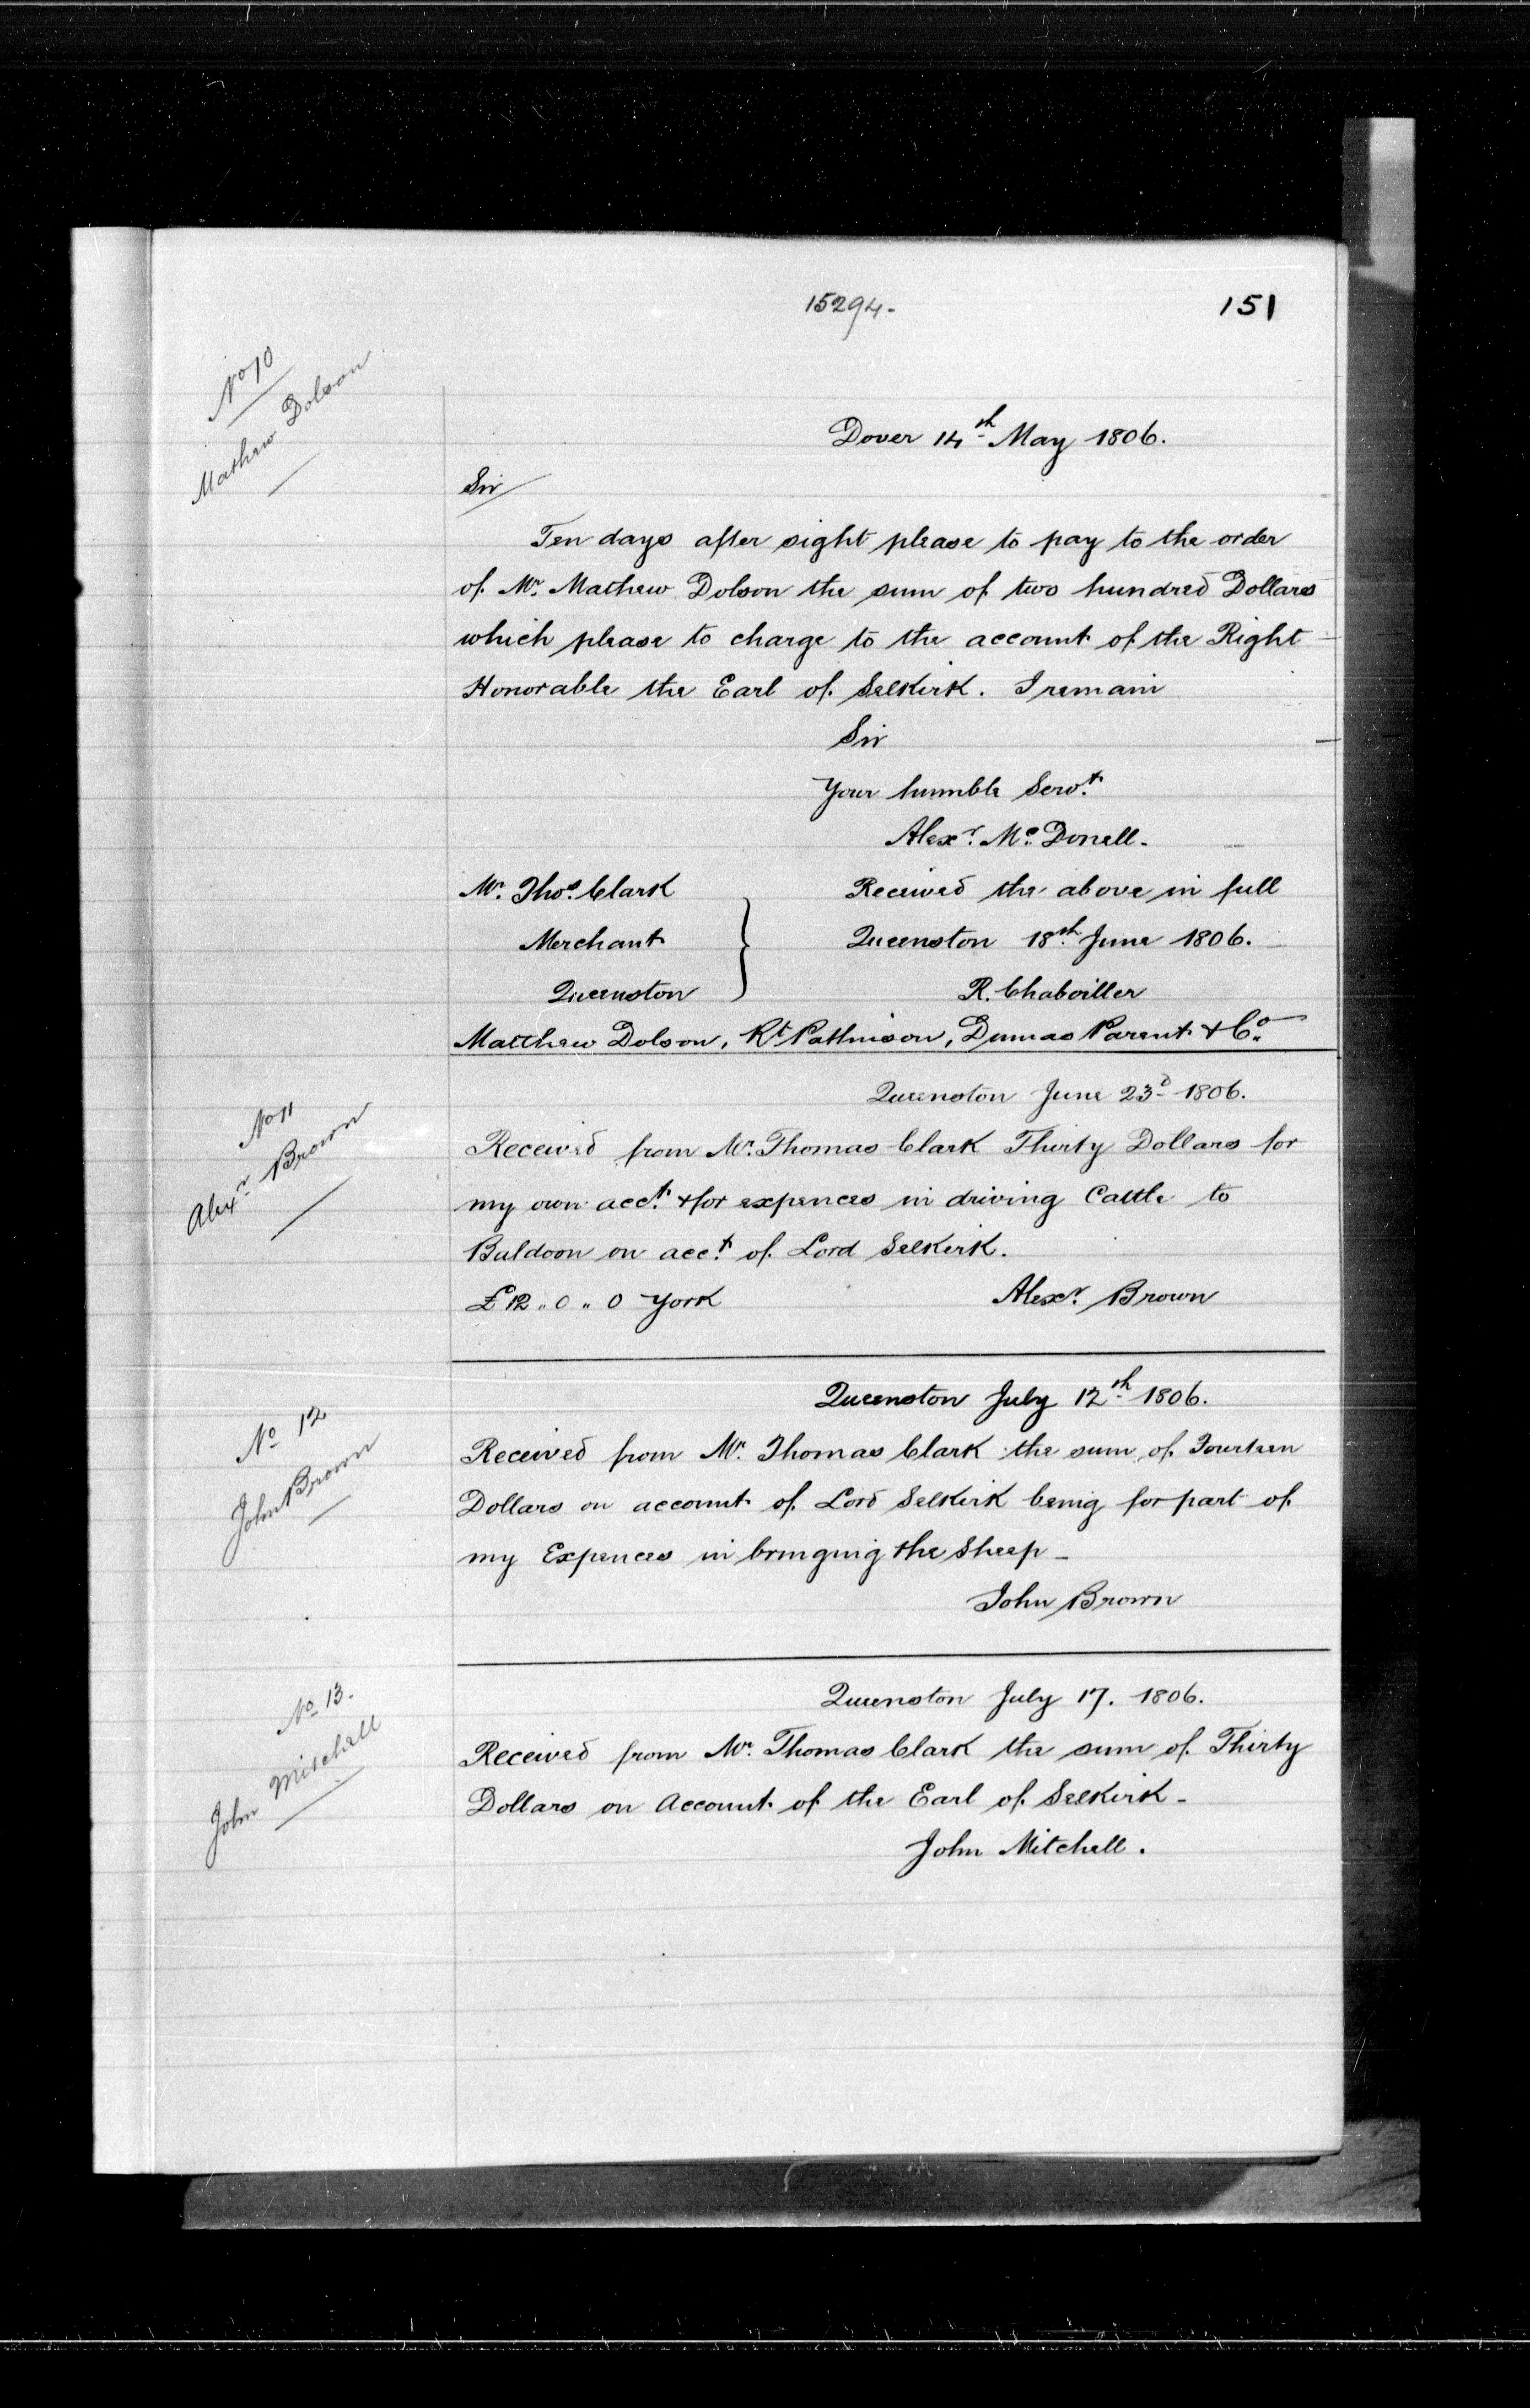 15294.
151
No 10
Mathew Dolson
Dover 14th May 1806.
Sir
Ten days after sight please to pay to the order
of Mr. Mathew Dolson the sum of two hundred Dollars
which please to charge to the account of the Right
Honorable the Earl of Selkirk. I remain
Sir
Your humble Servt.
Alexr. Mc. Donell.
Mr. Thos. Clark
Merchant
Queenston
Received the above in full
Queenston 18th. June 1806.
R. Chaboiller
Matthew Dolson, Rt Pattinson, Dumas Parent & Co.
No 11
Alexr. Brown
Queenston June 23d 1806.
Received from Mr. Thomas Clark Thirty Dollars for
my own acct. & for expences in driving Cattle to
Baldoon on acct. of Lord Selkirk.
£12 „ 0 „ 0 York
Alexr. Brown
No 12
John Brown
Queenston July 12th 1806.
Received from Mr. Thomas Clark the sum of Fourteen
Dollars on account of Lord Selkirk being for part of
my Expences in bringing the Sheep -
John Brown
No 13.
John Mitchell
Queenston July 17. 1806.
Received from Mr. Thomas Clark the sum of Thirty
Dollars on Account of the Earl of Selkirk -
John Mitchell.